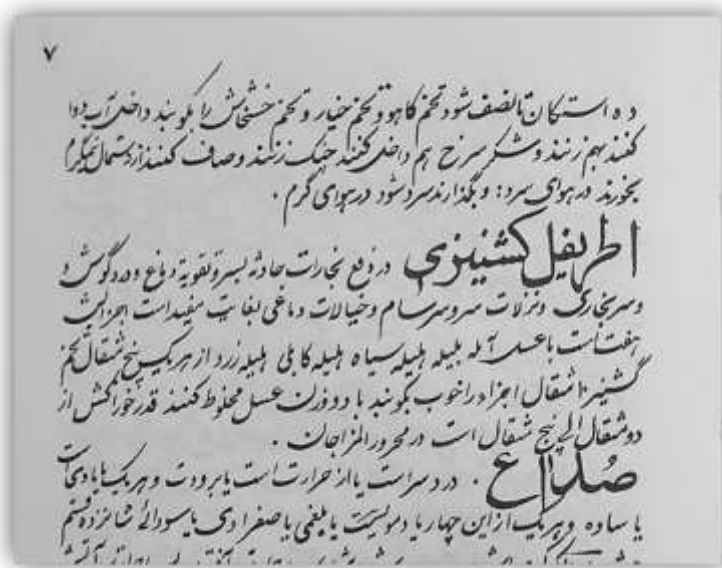 ۷
ده استکان تا نصف شود تخم کاهو و تخم خیار و تخم خشخاش را بکوبند داخل آب دوا
کنند بهم زنند و شکر سرخ هم داخل کنند چنگ زنند و صاف کنند از دستمال نیمگرم
بخورند در هوای سرد: و بگذارند سرد شود در هوای گرم.
اطریفل کشنیزی در دفع بخارات حادثه بسر و تقویة دماغ و درد گوش و
و سر بخاری و نزلات سر و سرسام و خیالات دماغی بغایت مفید است اجزایش
هفت است با عسل آمله بلیله هلیله سیاه هلیله کابلی هلیله زرد از هر یک پنج مثقال تخم
گشنیز ۱۰ مثقال اجزاء را خوب بکوبند با دو وزن عسل مخلوط کنند قدر خوراکش از
دو مثقال الی پنج مثقال است در محرور المزاجان.
صُداع. درد سر است یا از حرارت است یا برودت و هر یک یا مادی است
یا ساده و هر یک از این چهار یا دمویست یا بلغمی یا صفرادی یا سودائی شانزده قسم